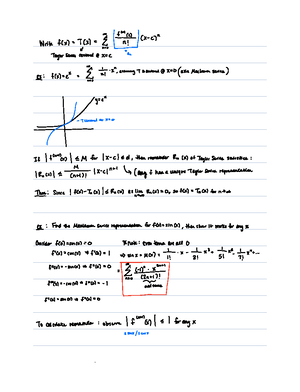 Write f(x) = T(x) = ∑ f⁽ⁿ⁾(c)/n! (x-c)ⁿ
Taylor Series centered @ x=c
Ex: f(x)=eˣ = ∑ 1/n! · xⁿ, assuming T is centered @ x=0 (aka Maclaurin Series)
y=eˣ
T centered on x=0
If |f⁽ⁿ⁺¹⁾(x)| ≤ M for |x-c| ≤ d, then remainder Rₙ(x) of Taylor Series satisfies:
|Rₙ(x)| ≤ M/(n+1)! |x-c|ⁿ⁺¹ any f has a unique Taylor Series representation
Then: Since |f(x)-Tₙ(x)| ≤ Rₙ(x) & lim Rₙ(x) = 0, so f(x) = Tₙ(x) for n→∞
Ex: Find the Maclaurin Series representation for f(x)=sin(x), then show it works for any x
Consider f(0)=sin(0)=0
f'(x)=cos(x) → f'(0)=1
f''(x)=-sin(x) → f''(0)=0
f'''(x)=-cos(x) → f'''(0)=-1
f⁗(x)=sin(x) → f⁗(0)=0
Pattern: Even terms are all 0
→ sin x = 1/1! · x - 1/3! x³ + 1/5! x⁵ - 1/7! x⁷ + ...
= ∑ (-1)ⁿ · x²ⁿ⁺¹/(2n+1)!
odd terms
To calculate remainder: observe |f⁽ⁿ⁺¹⁾(x)| ≤ 1 for any x